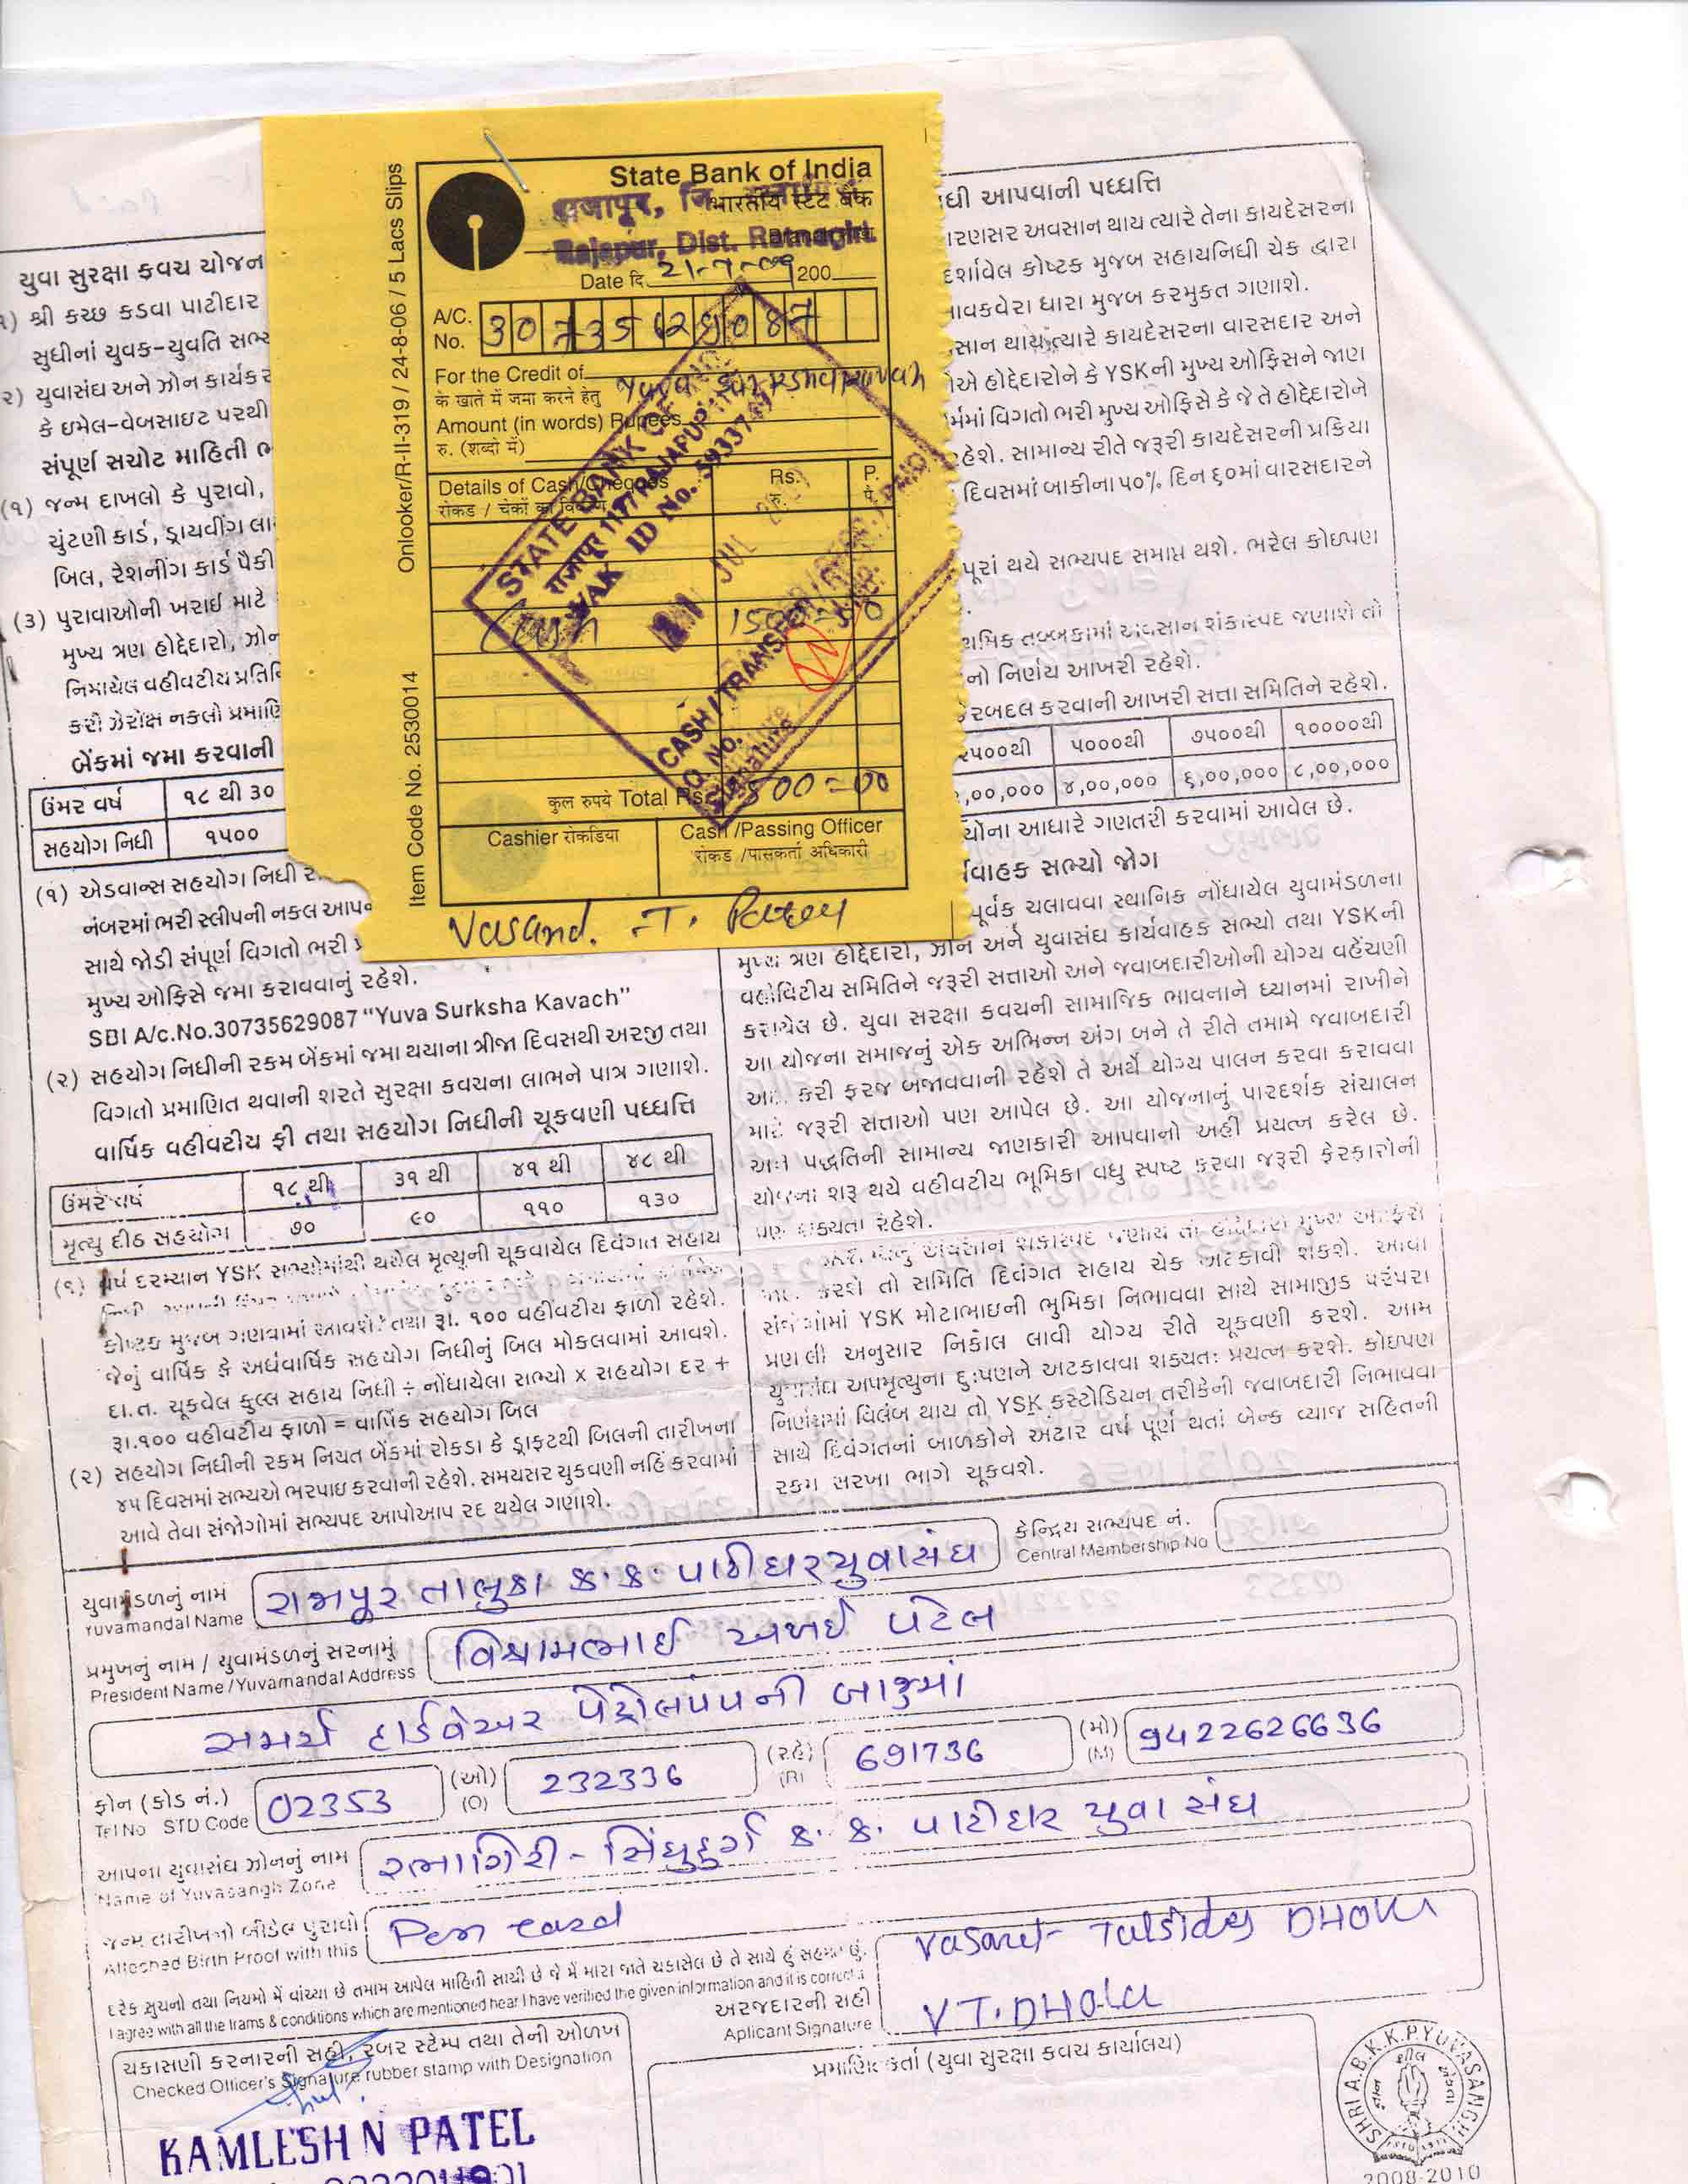 State Bank of India
भारतीय स्टेट बैंक
राजापूर, जि.
Rajapur, Dist. Ratnagiri.
Date दि. 21-7-09 200
A/C. No. 30735629087
For the Credit of Yuva Surkshakavach
के खाते में जमा करने हेतु
Amount (in words) Rupees
रु. (शब्दों में)
Details of Cash/Cheques Rs. P.
रोकड / चेकों का विवरण रु. पै.
STATE BANK OF
राजापूर 1177 RAJAPUR
ID No.
21 JUL
Cash 1500=00
CASH / TRANSFER
Signature
कुल रुपये Total Rs. 1500=00
Cashier रोकडिया Cash /Passing Officer
रोकड /पासकर्ता अधिकारी
Vasand. T. Patel
Onlooker/R-II-319 / 24-8-06 / 5 Lacs Slips
Item Code No. 2530014
યુવા સુરક્ષા કવચ યોજન
શ્રી કચ્છ કડવા પાટીદાર
સુધીનાં યુવક-યુવતિ સભ્ય
૨) યુવાસંઘ અને ઝોન કાર્યકર
કે ઇમેલ-વેબસાઇટ પરથી
સંપૂર્ણ સચોટ માહિતી ભ
(૧) જન્મ દાખલો કે પુરાવો,
ચુંટણી કાર્ડ, ડ્રાયવીંગ લા
બિલ, રેશનીંગ કાર્ડ પૈકી
(૩) પુરાવાઓની ખરાઇ માટે
મુખ્ય ત્રણ હોદ્દેદારો, ઝોન
નિમાયેલ વહીવટીય પ્રતિનિ
કરી ઝેરોક્ષ નકલો પ્રમાણિ
બેંકમાં જમા કરવાની
ઉંમર વર્ષ ૧૮ થી ૩૦
સહયોગ નિધી ૧૫૦૦
(૧) એડવાન્સ સહયોગ નિધી
નંબરમાં ભરી સ્લીપની નકલ આપ
સાથે જોડી સંપૂર્ણ વિગતો ભરી
મુખ્ય ઓફિસે જમા કરાવવાનું રહેશે.
SBI A/c.No.30735629087 “Yuva Surksha Kavach”
(૨) સહયોગ નિધીની રકમ બેંકમાં જમા થયાના ત્રીજા દિવસથી અરજી તથા
વિગતો પ્રમાણિત થવાની શરતે સુરક્ષા કવચના લાભને પાત્ર ગણાશે.
વાર્ષિક વહીવટીય ફી તથા સહયોગ નિધીની ચૂકવણી પધ્ધતિ
ઉંમર વર્ષ ૧૮ થી ૩૧ થી ૪૧ થી ૪૮ થી
મૃત્યુ દીઠ સહયોગ ૭૦ ૯૦ ૧૧૦ ૧૩૦
(૧) વર્ષ દરમ્યાન YSK સભ્યોમાંથી થયેલ મૃત્યુની ચૂકવાયેલ દિવંગત સહાય
કોષ્ટક મુજબ ગણવામાં આવશે. તથા રૂા. ૧૦૦ વહીવટીય ફાળો રહેશે.
જેનું વાર્ષિક કે અર્ધવાર્ષિક સહયોગ નિધીનું બિલ મોકલવામાં આવશે.
દા.ત. ચૂકવેલ કુલ્લ સહાય નિધી ÷ નોંધાયેલા સભ્યો x સહયોગ દર +
રૂા.૧૦૦ વહીવટીય ફાળો = વાર્ષિક સહયોગ બિલ
(૨) સહયોગ નિધીની રકમ નિયત બેંકમાં રોકડા કે ડ્રાફટથી બિલની તારીખના
૪૫ દિવસમાં સભ્યએ ભરપાઇ કરવાની રહેશે. સમયસર ચુકવણી નહિં કરવામાં
આવે તેવા સંજોગોમાં સભ્યપદ આપોઆપ રદ થયેલ ગણાશે.
ધી આપવાની પધ્ધતિ
રણસર અવસાન થાય ત્યારે તેના કાયદેસરના
દર્શાવેલ કોષ્ટક મુજબ સહાયનિધી ચેક દ્વારા
આવકવેરા ધારા મુજબ કરમુકત ગણાશે.
સાન થાય ત્યારે કાયદેસરના વારસદાર અને
એ હોદ્દેદારોને કે YSKની મુખ્ય ઓફિસને જાણ
ર્મમાં વિગતો ભરી મુખ્ય ઓફિસે કે જે તે હોદ્દેદારોને
રહેશે. સામાન્ય રીતે જરૂરી કાયદેસરની પ્રકિયા
દિવસમાં બાકીના ૫૦% દિન ૬૦માં વારસદારને
પૂરાં થયે સભ્યપદ સમાપ્ત થશે. ભરેલ કોઇપણ
થમિક તબ્બકામાં અવસાન શંકાસ્પદ જણાશે તો
નો નિર્ણય આખરી રહેશે.
ફેરબદલ કરવાની આખરી સત્તા સમિતિને રહેશે.
૨૫૦૦થી ૫૦૦૦થી ૭૫૦૦થી ૧૦૦૦૦થી
,૦૦,૦૦૦ ૪,૦૦,૦૦૦ ૬,૦૦,૦૦૦ ૮,૦૦,૦૦૦
યોના આધારે ગણતરી કરવામાં આવેલ છે.
ર્યવાહક સભ્યો જોગ
પૂર્વક ચલાવવા સ્થાનિક નોંધાયેલ યુવામંડળના
મુખ્ય ત્રણ હોદ્દેદારો, ઝોન અને યુવાસંઘ કાર્યવાહક સભ્યો તથા YSKની
વહીવિટીય સમિતિને જરૂરી સત્તાઓ અને જવાબદારીઓની યોગ્ય વહેંચણી
કરાયેલ છે. યુવા સરક્ષા કવચની સામાજિક ભાવનાને ધ્યાનમાં રાખીને
આ યોજના સમાજનું એક અભિન્ન અંગ બને તે રીતે તમામે જવાબદારી
કરી ફરજ બજાવવાની રહેશે તે અર્થે યોગ્ય પાલન કરવા કરાવવા
માટે જરૂરી સત્તાઓ પણ આપેલ છે. આ યોજનાનું પારદર્શક સંચાલન
અને પદ્ધતિની સામાન્ય જાણકારી આપવાનો અહીં પ્રયત્ન કરેલ છે.
યોજના શરૂ થયે વહીવટીય ભૂમિકા વધુ સ્પષ્ટ કરવા જરૂરી ફેરફારોની
પણ શક્યતા રહેશે.
અવસાન શંકાસ્પદ જણાય તો હોદ્દેદારો મુખ્ય ઓફિસે
કરશે તો સમિતિ દિવંગત સહાય ચેક અટકાવી શકશે. આવા
સંજોગોમાં YSK મોટાભાઇની ભુમિકા નિભાવવા સાથે સામાજીક પરંપરા
પ્રણાલી અનુસાર નિકાલ લાવી યોગ્ય રીતે ચૂકવણી કરશે. આમ
યુવાસંઘ અપમૃત્યુના દુઃષણને અટકાવવા શક્યતઃ પ્રયત્ન કરશે. કોઇપણ
નિર્ણયમાં વિલંબ થાય તો YSK કસ્ટોડિયન તરીકેની જવાબદારી નિભાવવા
સાથે દિવંગતનાં બાળકોને અઢાર વર્ષ પૂર્ણ થતાં બેન્ક વ્યાજ સહિતની
રકમ સરખા ભાગે ચૂકવશે.
યુવામંડળનું નામ રાજાપૂર તાલુકા ક. ક. પાટીદાર યુવાસંઘ
Yuvamandal Name
કેન્દ્રિય સભ્યપદ નં.
Central Membership No
પ્રમુખનું નામ / યુવામંડળનું સરનામું વિશ્રામભાઈ અબજી પટેલ
President Name /Yuvamandal Address
સમર્થ હાર્ડવેઅર પેટ્રોલપંપની બાજુમાં
ફોન (કોડ નં.) 02353 (ઓ) 232336 (રહે) 691736 (મો) 9422626636
Tel No STD Code (O) (R) (M)
આપના યુવાસંઘ ઝોનનું નામ રત્નાગિરી - સિંધુદુર્ગ ક. ક. પાટીદાર યુવા સંઘ
Name of Yuvasangh Zone
જન્મ તારીખનો બીડેલ પુરાવો Pen card
Atteched Birth Proof with this
દરેક સુચનો તથા નિયમો મેં વાંચ્યા છે તમામ આપેલ માહિતી સાચી છે જે મેં મારા જાતે ચકાસેલ છે તે સાથે હું સહમત છું.
I agree with all the trams & conditions which are mentioned hear I have verified the given information and it is correct.
અરજદારની સહી Vasant Tulsidas DHOLU
Aplicant Signature V T. DHOLU
ચકાસણી કરનારની સહી, રબર સ્ટેમ્પ તથા તેની ઓળખ
Checked Officer's Signature rubber stamp with Designation
KAMLESH N PATEL
પ્રમાણિતકર્તા (યુવા સુરક્ષા કવચ કાર્યાલય)
SHRI A.B.K.K.P. YUVASANGH
2008-2010